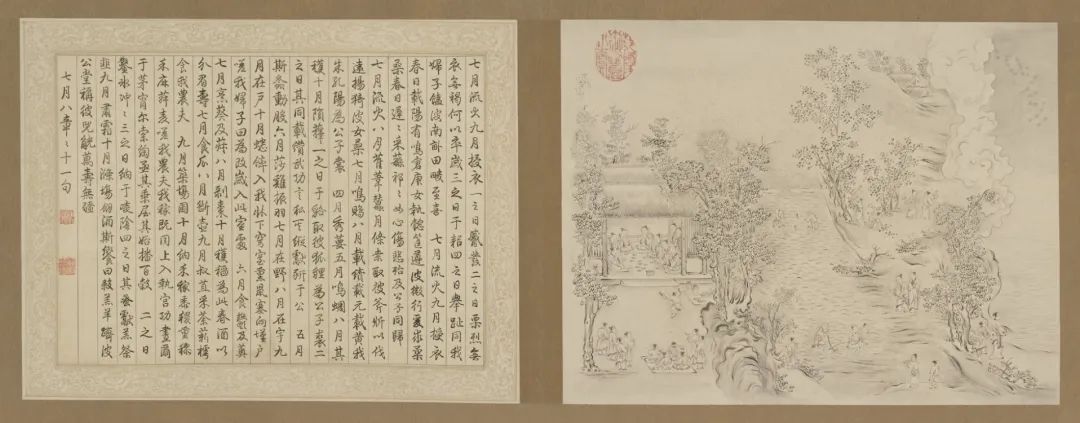 七月流火九月授衣一之日觱發二之日栗烈無
衣無褐何以卒歲三之日于耜四之日舉趾同我
婦子饁彼南畝田畯至喜 七月流火九月授衣
春日載陽有鳴倉庚女執懿筐遵彼微行爰求柔
桑春日遲〻采蘩祁〻女心傷悲殆及公子同歸
七月流火八月萑葦蠶月條桑取彼斧斨以伐
遠揚猗彼女桑七月鳴鵙八月載績載玄載黃我
朱孔陽為公子裳 四月秀葽五月鳴蜩八月其
穫十月隕蘀一之日于貉取彼狐狸為公子裘二
之日其同載纘武功言私其豵獻豜于公 五月
斯螽動股六月莎雞振羽七月在野八月在宇九
月在戶十月蟋蟀入我牀下穹窒熏鼠塞向墐戶
嗟我婦子曰為改歲入此室處 六月食鬱及薁
七月烹葵及菽八月剝棗十月穫稻為此春酒以
介眉壽七月食瓜八月斷壺九月叔苴采荼薪樗
食我農夫 九月築場圃十月納禾稼黍稷重穋
禾麻菽麥嗟我農夫我稼既同上入執宮功晝爾
于茅宵爾索綯亟其乘屋其始播百穀 二之日
鑿冰沖〻三之日納于凌陰四之日其蚤獻羔祭
韭九月肅霜十月滌場朋酒斯饗曰殺羔羊躋彼
公堂稱彼兕觥萬壽無疆
七月八章〻十一句